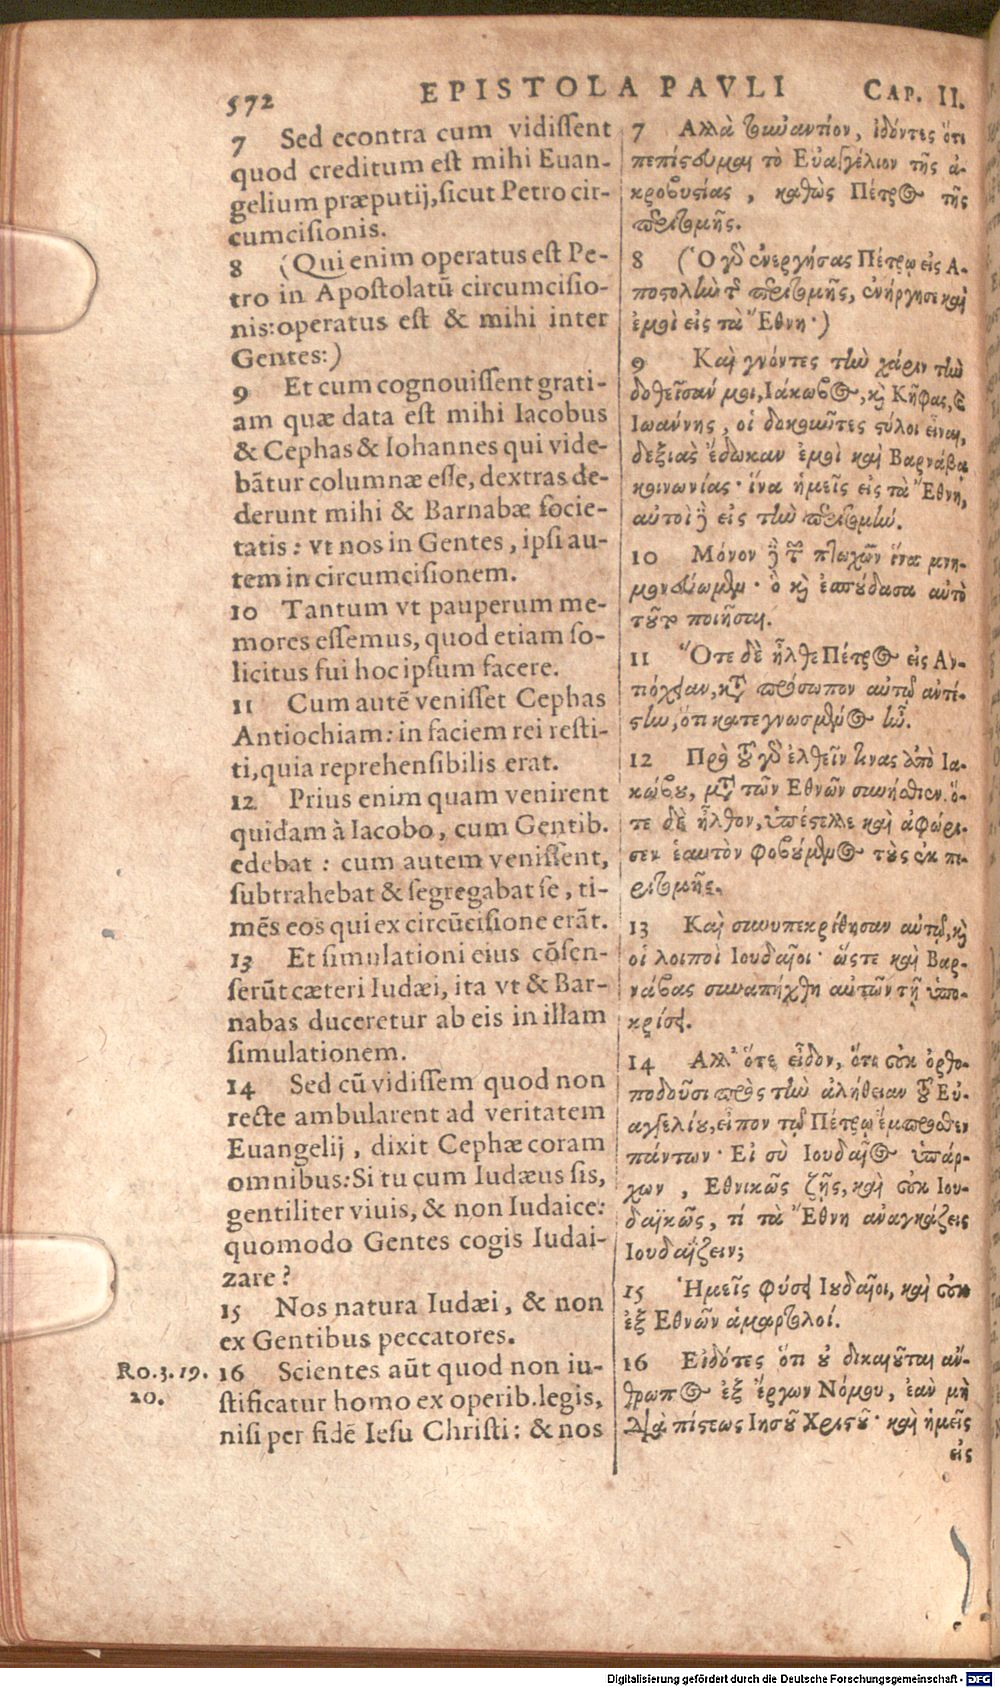 572
EPISTOLA PAVLI
CAP. II.
7 Sed econtra cum vidissent
quod creditum est mihi Euan-
gelium præputij, sicut Petro cir-
cumcisionis.
8 (Qui enim operatus est Pe-
tro in Apostolatū circumcisio-
nis: operatus est & mihi inter
Gentes:)
9 Et cum cognouissent grati-
am quæ data est mihi Iacobus
& Cephas & Iohannes qui vide-
bātur columnæ esse, dextras de-
derunt mihi & Barnabæ socie-
tatis: vt nos in Gentes, ipsi au-
tem in circumcisionem.
10 Tantum vt pauperum me-
mores essemus, quod etiam so-
licitus fui hoc ipsum facere.
11 Cum autē venisset Cephas
Antiochiam: in faciem rei resti-
ti, quia reprehensibilis erat.
12 Prius enim quam venirent
quidam à Iacobo, cum Gentib.
edebat: cum autem venissent,
subtrahebat & segregabat se, ti-
mēs eos qui ex circūcisione erāt.
13 Et simulationi eius cōsen-
serūt cæteri Iudæi, ita vt & Bar-
nabas duceretur ab eis in illam
simulationem.
14 Sed cū vidissem quod non
recte ambularent ad veritatem
Euangelij, dixit Cephæ coram
omnibus: Si tu cum Iudæus sis,
gentiliter viuis, & non Iudaice:
quomodo Gentes cogis Iudai-
zare?
15 Nos natura Iudæi, & non
ex Gentibus peccatores.
Ro. 3. 19.
20.
16 Scientes aūt quod non iu-
stificatur homo ex operib. legis,
nisi per fidē Iesu Christi: & nos
7 Αλλὰ τοὐναντίον, ἰδόντες ὅτι
πεπίστευμαι τὸ Εὐαγγέλιον τῆς ἀ-
κροβυστίας, καθὼς Πέτρος τῆς
περιτομῆς.
8 (Ὁ γὰρ ἐνεργήσας Πέτρῳ εἰς Α-
ποστολὴν τῆς περιτομῆς, ἐνήργησε καὶ
ἐμοὶ εἰς τὰ Ἔθνη·)
9 Καὶ γνόντες τὴν χάριν τὴν
δοθεῖσάν μοι, Ιάκωβος, καὶ Κηφας, καὶ
Ιωάννης, οἱ δοκοῦντες στύλοι εἶναι,
δεξιὰς ἔδωκαν ἐμοὶ καὶ Βαρνάβα
κοινωνίας· ἵνα ἡμεῖς εἰς τὰ Ἔθνη,
αὐτοὶ δὲ εἰς τὴν περιτομήν.
10 Μόνον δὲ τῶν πτωχῶν ἵνα μνη-
μονεύωμεν· ὃ καὶ ἐσπούδασα αὐτὸ
τοῦτο ποιῆσαι.
11 Ὅτε δὲ ἦλθε Πέτρος εἰς Αν-
τιόχειαν, κατὰ πρόσωπον αὐτῷ ἀντέ-
στην, ὅτι κατεγνωσμένος ἦν.
12 Πρὸ τοῦ γὰρ ἐλθεῖν τινας ἀπὸ Ια-
κώβου, μετὰ τῶν Εθνῶν συνήσθιεν. ὅ-
τε δὲ ἦλθον, ὑπέστελλε καὶ ἀφώρι-
σεν ἑαυτὸν φοβούμενος τοὺς ἐκ πε-
ριτομῆς.
13 Καὶ συνυπεκρίθησαν αὐτῷ, καὶ
οἱ λοιποὶ Ιουδαῖοι· ὥστε καὶ Βαρ-
νάβας συναπήχθη αὐτῶν τῇ ὑπο-
κρίσει.
14 Αλλ' ὅτε εἶδον, ὅτι οὐκ ὀρθο-
ποδοῦσι πρὸς τὴν ἀλήθειαν τοῦ Εὐ-
αγγελίου, εἶπον τῷ Πέτρῳ ἔμπροσθεν
πάντων· Εἰ σὺ Ιουδαῖος ὑπάρ-
χων, Εθνικῶς ζῇς, καὶ οὐκ Ιου-
δαϊκῶς, τί τὰ Ἔθνη ἀναγκάζεις
Ιουδαΐζειν;
15 Ἡμεῖς φύσει Ιουδαῖοι, καὶ οὐκ
ἐξ Εθνῶν ἁμαρτωλοί.
16 Εἰδότες ὅτι οὐ δικαιοῦται ἄν-
θρωπος ἐξ ἔργων Νόμου, ἐὰν μὴ
διὰ πίστεως Ιησοῦ Χριστοῦ· καὶ ἡμεῖς
εἰς
Digitalisierung gefördert durch die Deutsche Forschungsgemeinschaft - DFG